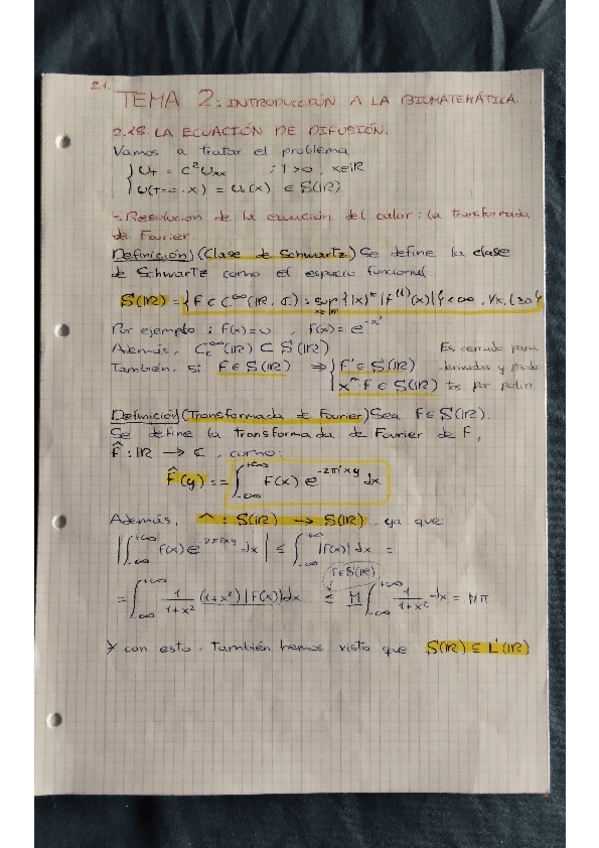 2.1.
TEMA 2: INTRODUCCIÓN A LA BIOMATEMÁTICA.
2.1§. LA ECUACIÓN DE DIFUSIÓN.
Vamos a tratar el problema
{ u_t = c²u_xx ; t>0, x∈ℝ
u(t=0, x) = u₀(x) ∈ S(ℝ)
Resolución de la ecuación del calor: la transformada
de Fourier.
Definición (Clase de Schwartz) Se define la clase
de Schwartz como el espacio funcional:
S(ℝ) = {f ∈ C^∞(ℝ, ℂ) : sup_{x∈ℝ} {|x|^k |f^(l)(x)|} < ∞, ∀k, l ≥ 0}
Por ejemplo: f(x)=0, f(x) = e^{-x²}
Además, C_c^∞(ℝ) ⊂ S(ℝ)
También, si f ∈ S(ℝ) ⇒ { f' ∈ S(ℝ)
x^n f ∈ S(ℝ)
Es cerrado para
derivadas y produc
tos por polin.
Definición (Transformada de Fourier) Sea f ∈ S(ℝ).
Se define la transformada de Fourier de f,
f̂ : ℝ → ℂ, como:
f̂(y) := ∫_{-∞}^{+∞} f(x) e^{-2πixy} dx
Además, ^ : S(ℝ) → S(ℝ), ya que:
|∫_{-∞}^{+∞} f(x) e^{-2πixy} dx| ≤ ∫_{-∞}^{+∞} |f(x)| dx =
f∈S(ℝ)
= ∫_{-∞}^{+∞} 1/(1+x²) (1+x²)|f(x)| dx ≤ M ∫_{-∞}^{+∞} 1/(1+x²) dx = Mπ
Y con esto, también hemos visto que S(ℝ) ⊆ L¹(ℝ)